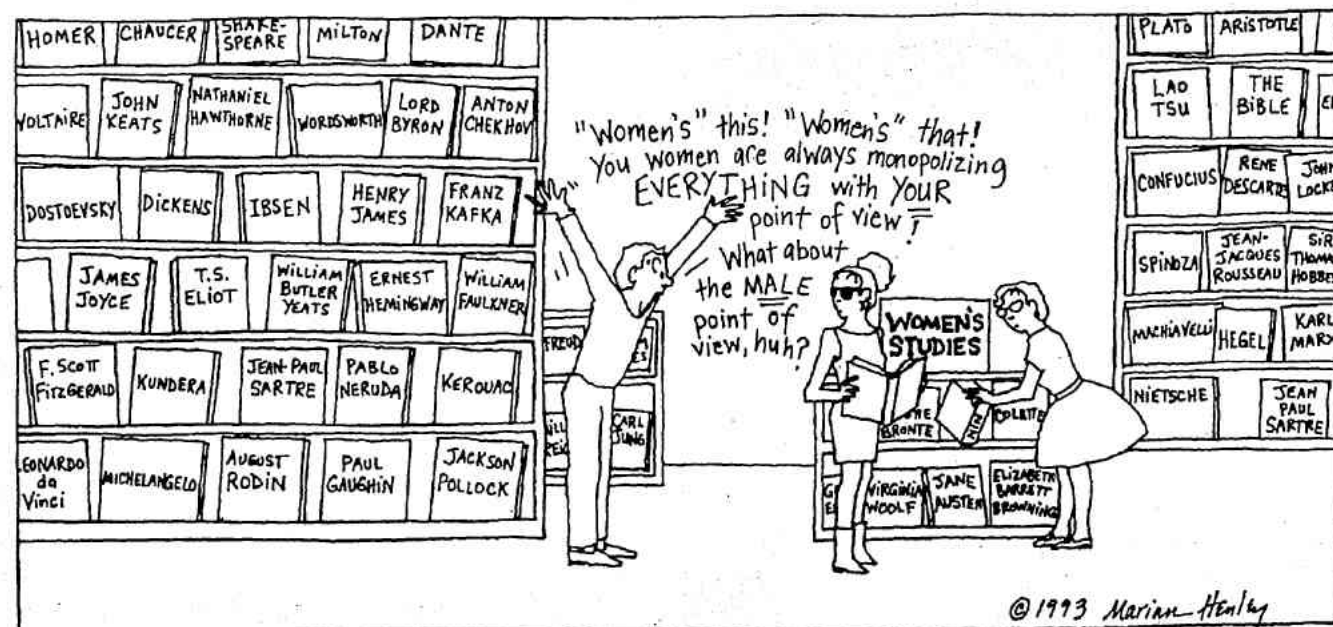 HOMER
CHAUCER
SHAKE-
SPEARE
MILTON
DANTE
VOLTAIRE
JOHN
KEATS
NATHANIEL
HAWTHORNE
WORDSWORTH
LORD
BYRON
ANTON
CHEKHOV
DOSTOEVSKY
DICKENS
IBSEN
HENRY
JAMES
FRANZ
KAFKA
JAMES
JOYCE
T.S.
ELIOT
WILLIAM
BUTLER
YEATS
ERNEST
HEMINGWAY
WILLIAM
FAULKNER
F. SCOTT
FITZGERALD
KUNDERA
JEAN-PAUL
SARTRE
PABLO
NERUDA
KEROUAC
EONARDO
da
Vinci
MICHELANGELO
AUGUST
RODIN
PAUL
GAUGHIN
JACKSON
POLLOCK
"Women's" this! "Women's" that!
You women are always monopolizing
EVERYTHING with YOUR
point of view!
What about
the MALE
point of
view, huh?
FREUD
CARL
JUNG
WOMEN'S
STUDIES
BRONTE
NIN
COLETTE
VIRGINIA
WOOLF
JANE
AUSTEN
ELIZABETH
BARRETT
BROWNING
PLATO
ARISTOTLE
LAO
TSU
THE
BIBLE
CONFUCIUS
RENE
DESCARTES
JOHN
LOCKE
SPINOZA
JEAN-
JACQUES
ROUSSEAU
SIR
THOMA
HOBBE
MACHIAVELLI
HEGEL
KARL
MARX
NIETSCHE
JEAN
PAUL
SARTRE
©1993 Marian Henley